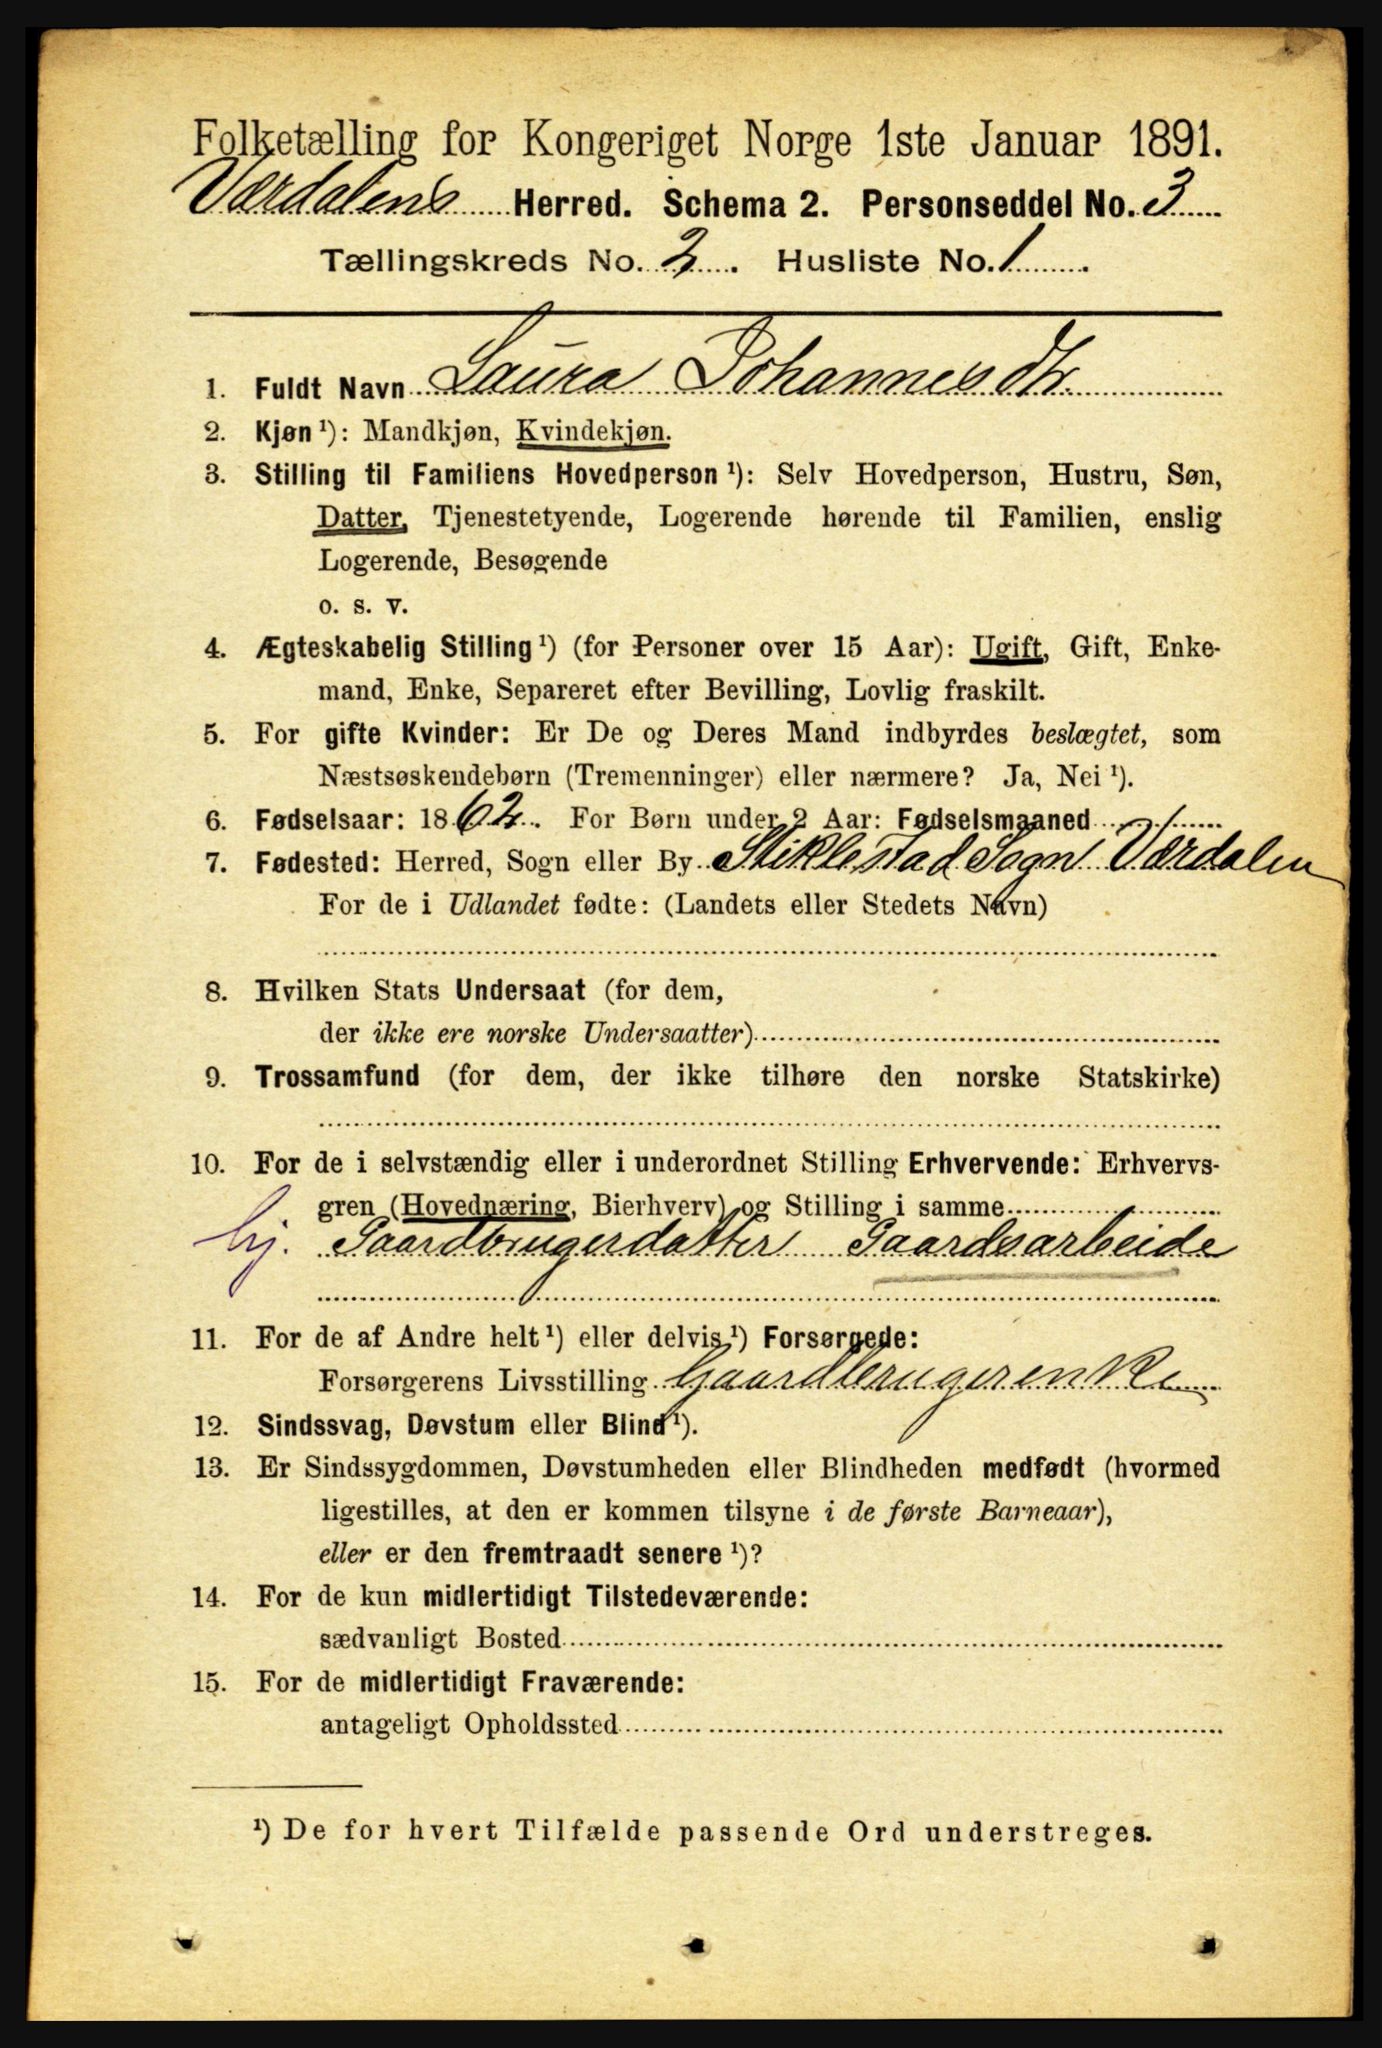 Folketælling for Kongeriget Norge 1ste Januar 1891.
Værdalens Herred. Schema 2. Personseddel No. 3
Tællingskreds No. 2. Husliste No. 1
1. Fuldt Navn Laura Johannesdtr.
2. Kjøn ¹): Mandkjøn, Kvindekjøn.
3. Stilling til Familiens Hovedperson ¹): Selv Hovedperson, Hustru, Søn,
Datter, Tjenestetyende, Logerende hørende til Familien, enslig
Logerende, Besøgende
o. s. v.
4. Ægteskabelig Stilling ¹) (for Personer over 15 Aar): Ugift, Gift, Enke-
mand, Enke, Separeret efter Bevilling, Lovlig fraskilt.
5. For gifte Kvinder: Er De og Deres Mand indbyrdes beslægtet, som
Næstsøskendebørn (Tremenninger) eller nærmere? Ja, Nei ¹).
6. Fødselsaar: 1862. For Børn under 2 Aar: Fødselsmaaned
7. Fødested: Herred, Sogn eller By Stiklestad Sogn Værdalen
For de i Udlandet fødte: (Landets eller Stedets Navn)
8. Hvilken Stats Undersaat (for dem,
der ikke ere norske Undersaatter)
9. Trossamfund (for dem, der ikke tilhøre den norske Statskirke)
10. For de i selvstændig eller i underordnet Stilling Erhvervende: Erhvervs-
gren (Hovednæring, Bierhverv) og Stilling i samme
hj. Gaardbrugerdatter Gaardsarbeide
11. For de af Andre helt ¹) eller delvis ¹) Forsørgede:
Forsørgerens Livsstilling Gaardbrugerenke
12. Sindssvag, Døvstum eller Blind ¹).
13. Er Sindssygdommen, Døvstumheden eller Blindheden medfødt (hvormed
ligestilles, at den er kommen tilsyne i de første Barneaar),
eller er den fremtraadt senere ¹)?
14. For de kun midlertidigt Tilstedeværende:
sædvanligt Bosted
15. For de midlertidigt Fraværende:
antageligt Opholdssted
¹) De for hvert Tilfælde passende Ord understreges.